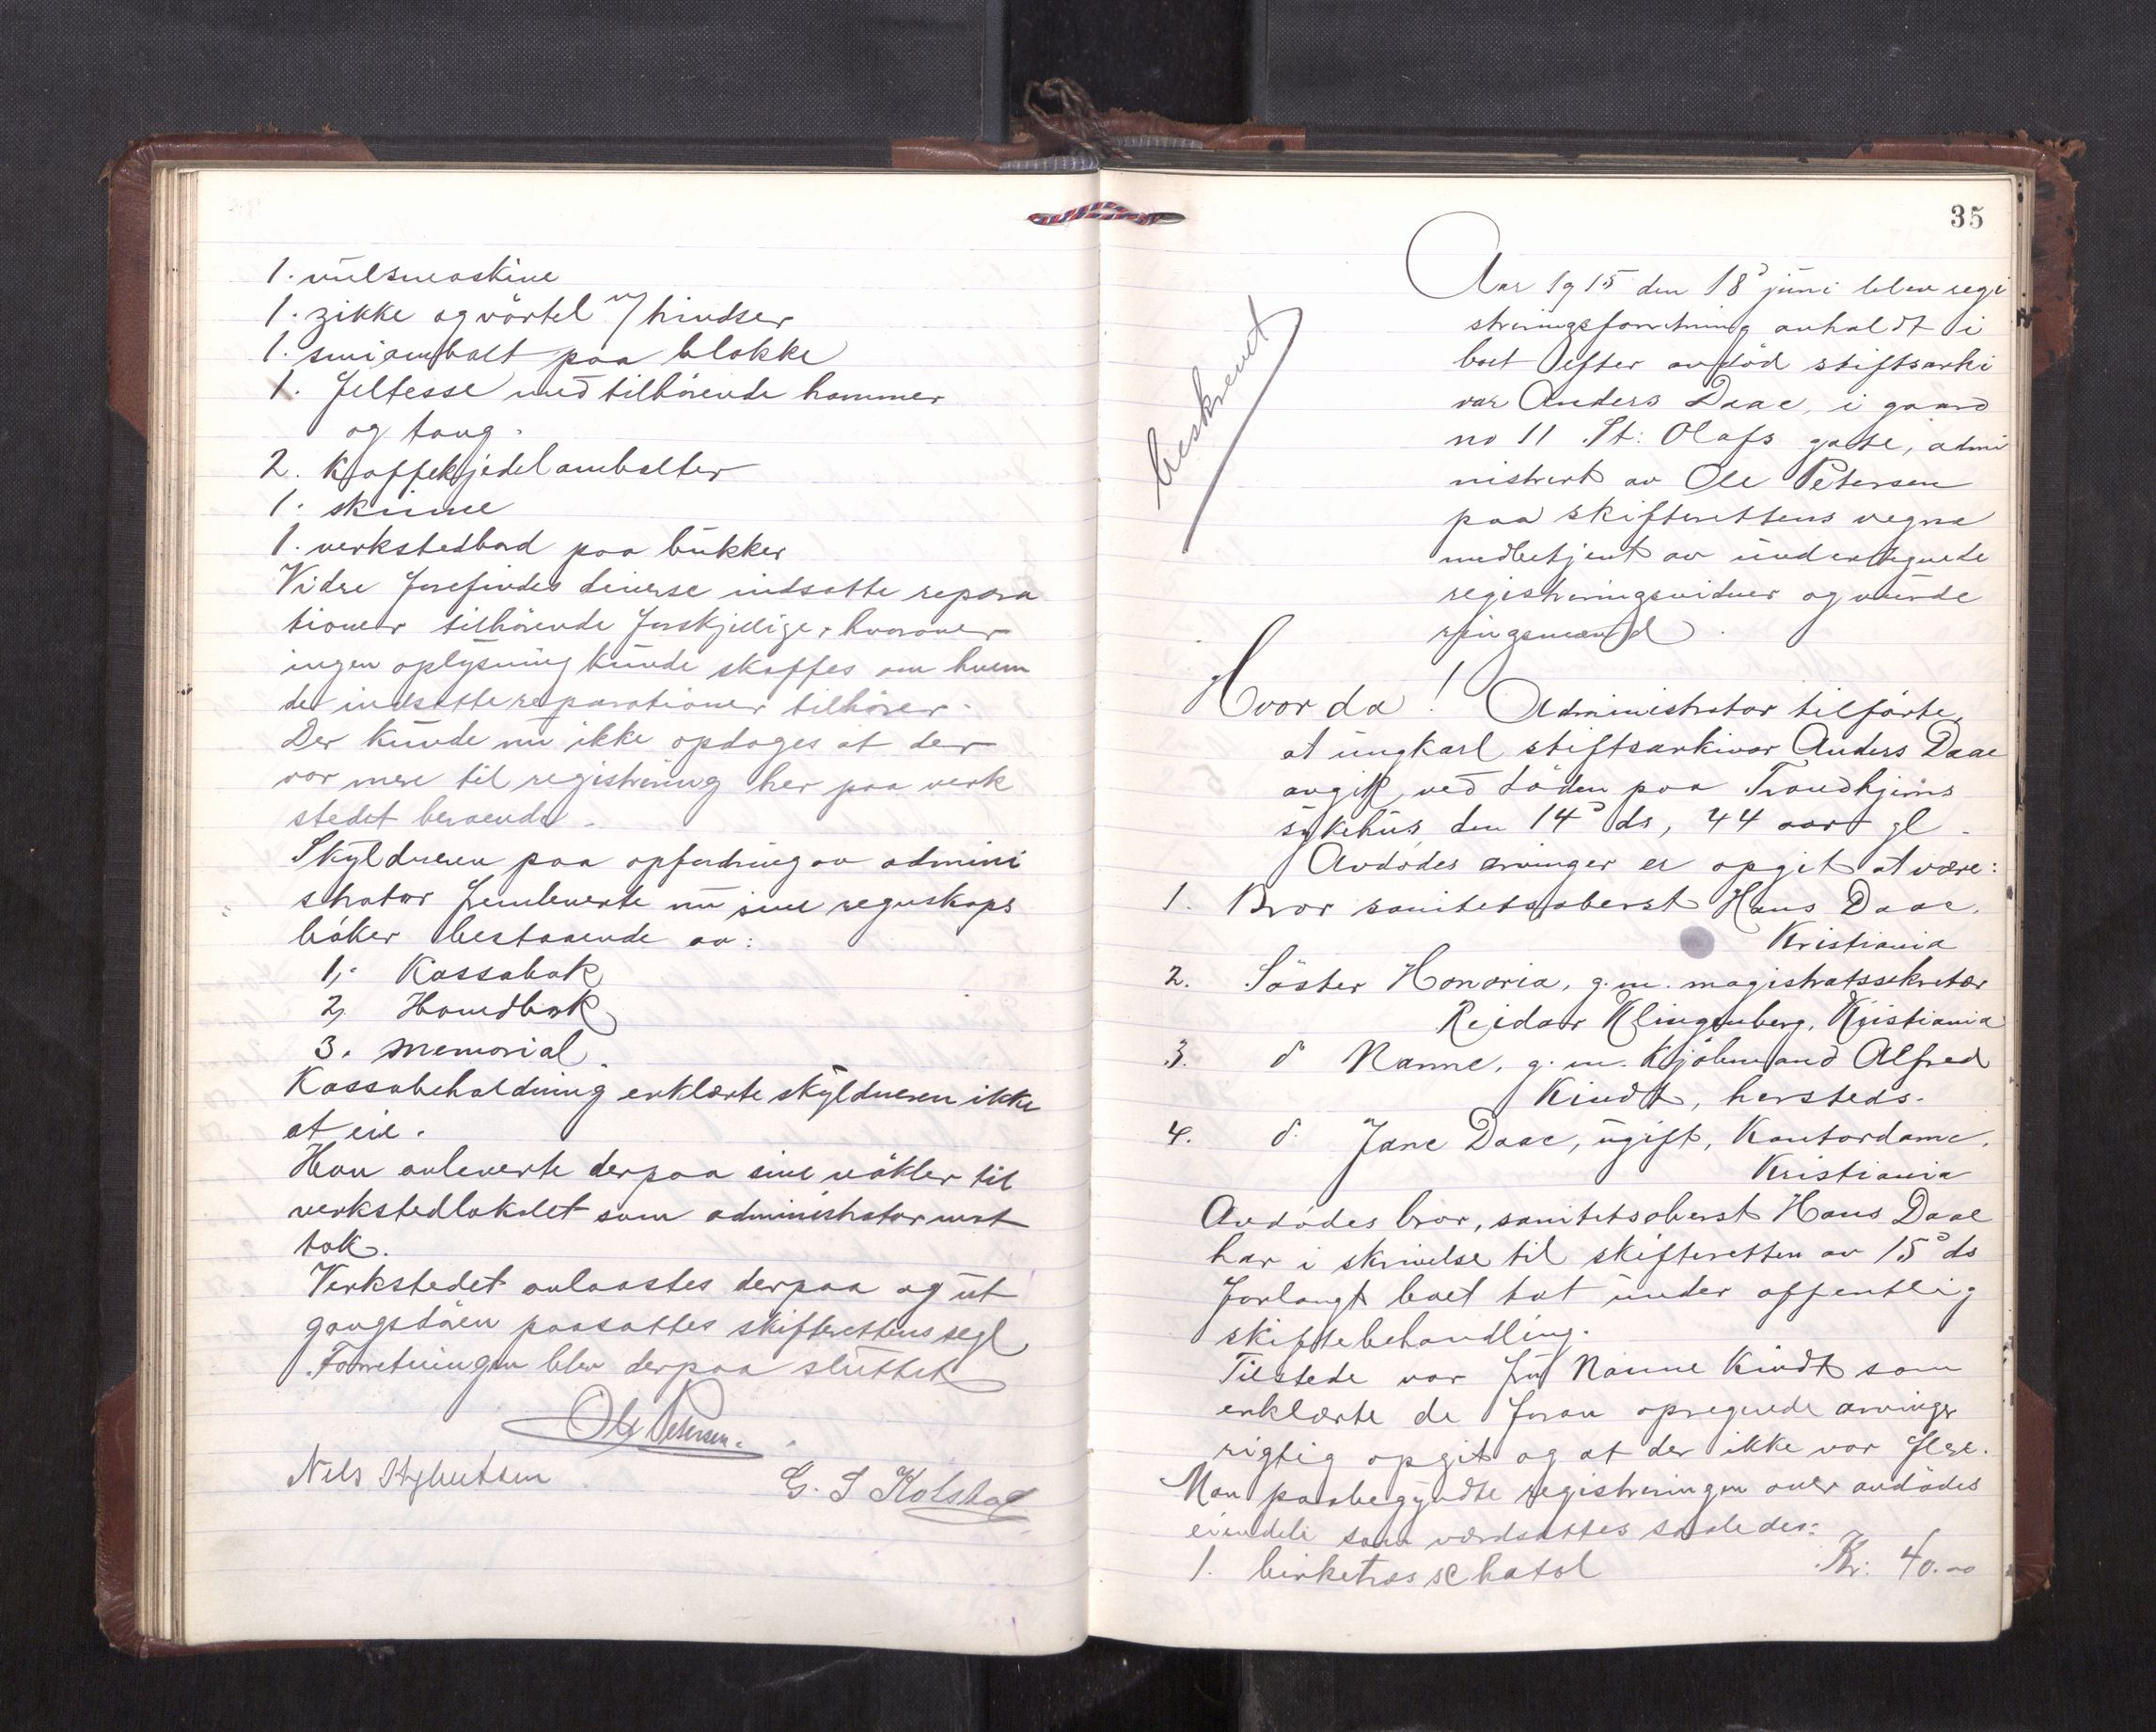 1. vulsmaskine
1. zikke og vörtel m/ hindser
1. smiambolt paa blokke
1. feltesse med tilhörende hammer
og tang.
2. kaffekjedelambolter
1. skinne
1. verkstedbord paa bukker
Vidre forefindes diverse indsatte repara
tioner tilhörende forskjellige, hvorover
ingen oplysning kunde skaffes om hvem
de indsatte reparationer tilhörer.
Der kunde nu ikke opdages at der
var mere til registrering her paa verk
stedet beroende.
Skyldneren paa opfordring av admini
strator fremleverte nu sine regnskaps
böker bestaaende av:
1, Kassabok
2, Hovedbok
3. memorial.
Kassabeholdning erklærte skyldneren ikke
at eie.
Han avleverte derpaa sine nökler til
verkstedlokalet som administrator mot
tok.
Verkstedet avlaastes derpaa og ut
gangsdören paasattes skifterettens segl
Forretningen blev derpaa sluttet
Ole Petersen.
Nils
G. S Kolstad
35
beskrevet
Aar 1915 den 18de juni blev regi
streringsforretning avholdt i
boet efter avdöd stiftsarki
var Anders Daae, i gaard
no 11 St: Olafs gate, admi
nistrert av Ole Petersen
paa skifterettens vegne
medbetjent av undertegnede
registreringsvidner og vurde
ringsmænd.
Hvor da! Administrator tilförte,
at ungkarl stiftsarkivar Anders Daae
avgik ved döden paa Trondhjems
sykehus den 14de ds, 44 aar gl.
Avdödes arvinger er opgit at være:
1. Bror sanitetsoberst Hans Daae,
Kristiania
2. Söster Honoria, g.m. magistratssekretær
Reidar Klingenberg, Kristiania
3. do Nanne, g.m. Kjöbmand Alfred
Kindt, hersteds.
4. do. Jane Daae, ugift, Kontordame,
Kristiania
Avdödes bror, sanitetsoberst Hans Daae
har i skrivelse til skifteretten av 15de ds
forlangt boet tat under offentlig
skiftebehandling.
Tilstede var fru Nanne Kindt som
erklærte de foran opregnede arvinger
rigtig opgit og at der ikke var flere.
Man paabegyndte registreringen over avdödes
eiendele som værdsattes saaledes:
1. birketræs schatol Kr: 40.00